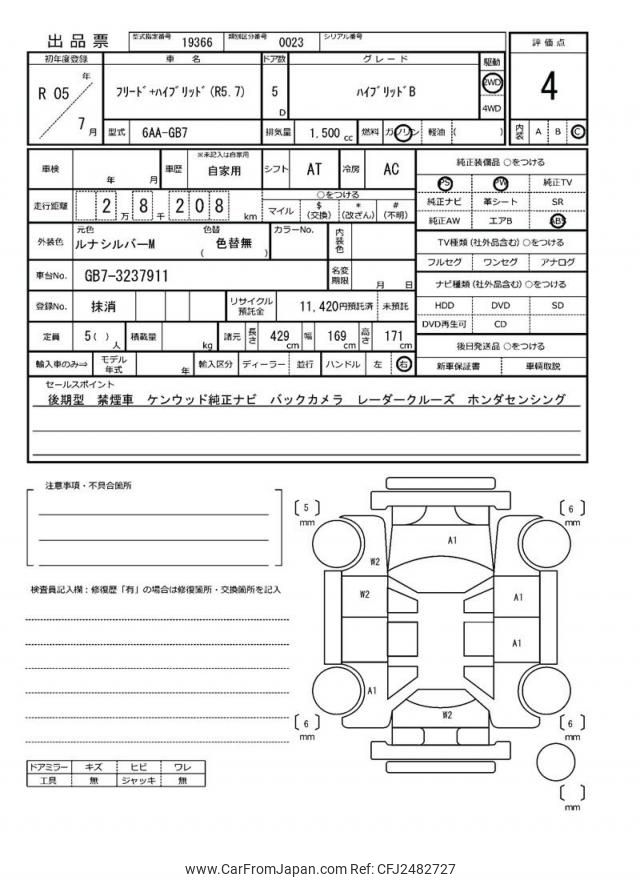 出品票 型式指定番号 19366 類別区分番号 0023 シリアル番号
評価点
4
内装 A B C
初年度登録 車名 ドア数 グレード 駆動
R 05 年 7 月
フリード+ハイブリッド(R5.7) 5 D ハイブリッドB 2WD
4WD
型式 6AA-GB7 排気量 1,500 cc 燃料 ガソリン 軽油 ( )
車検 年 月 車歴 ※未記入は自家用 自家用 シフト AT 冷房 AC
走行距離 2 万 8 千 2 0 8 km
○をつける
マイル $(交換) *(改ざん) #(不明)
外装色 元色 ルナシルバーM 色替 色替無 ( ) カラーNo. 内装色
車台No. GB7-3237911 名変期限 月 日
登録No. 抹消 リサイクル預託金 11,420円預託済 未預託
定員 5( ) 人 積載量 kg 諸元 長さ 429 cm 幅 169 cm 高さ 171 cm
輸入車のみ⇒ モデル年式 年 輸入区分 ディーラー 並行 ハンドル 左 右
純正装備品 ○をつける
PS PW 純正TV
純正ナビ 革シート SR
純正AW エアB ABS
TV種類(社外品含む)○をつける
フルセグ ワンセグ アナログ
ナビ種類(社外品含む)○をつける
HDD DVD SD
DVD再生可 CD
後日発送品 ○をつける
新車保証書 車輌取説
セールスポイント
後期型 禁煙車 ケンウッド純正ナビ バックカメラ レーダークルーズ ホンダセンシング
注意事項・不具合箇所
検査員記入欄：修復歴「有」の場合は修復箇所・交換箇所を記入
ドアミラー キズ ヒビ ワレ
工具 無 ジャッキ 無
[ 5 ] mm
[ 6 ] mm
A1
W2
W2
A1
A1
A1
W2
[ 6 ] mm
[ 6 ] mm
[ ] mm
www.CarFromJapan.com Ref: CFJ2482727